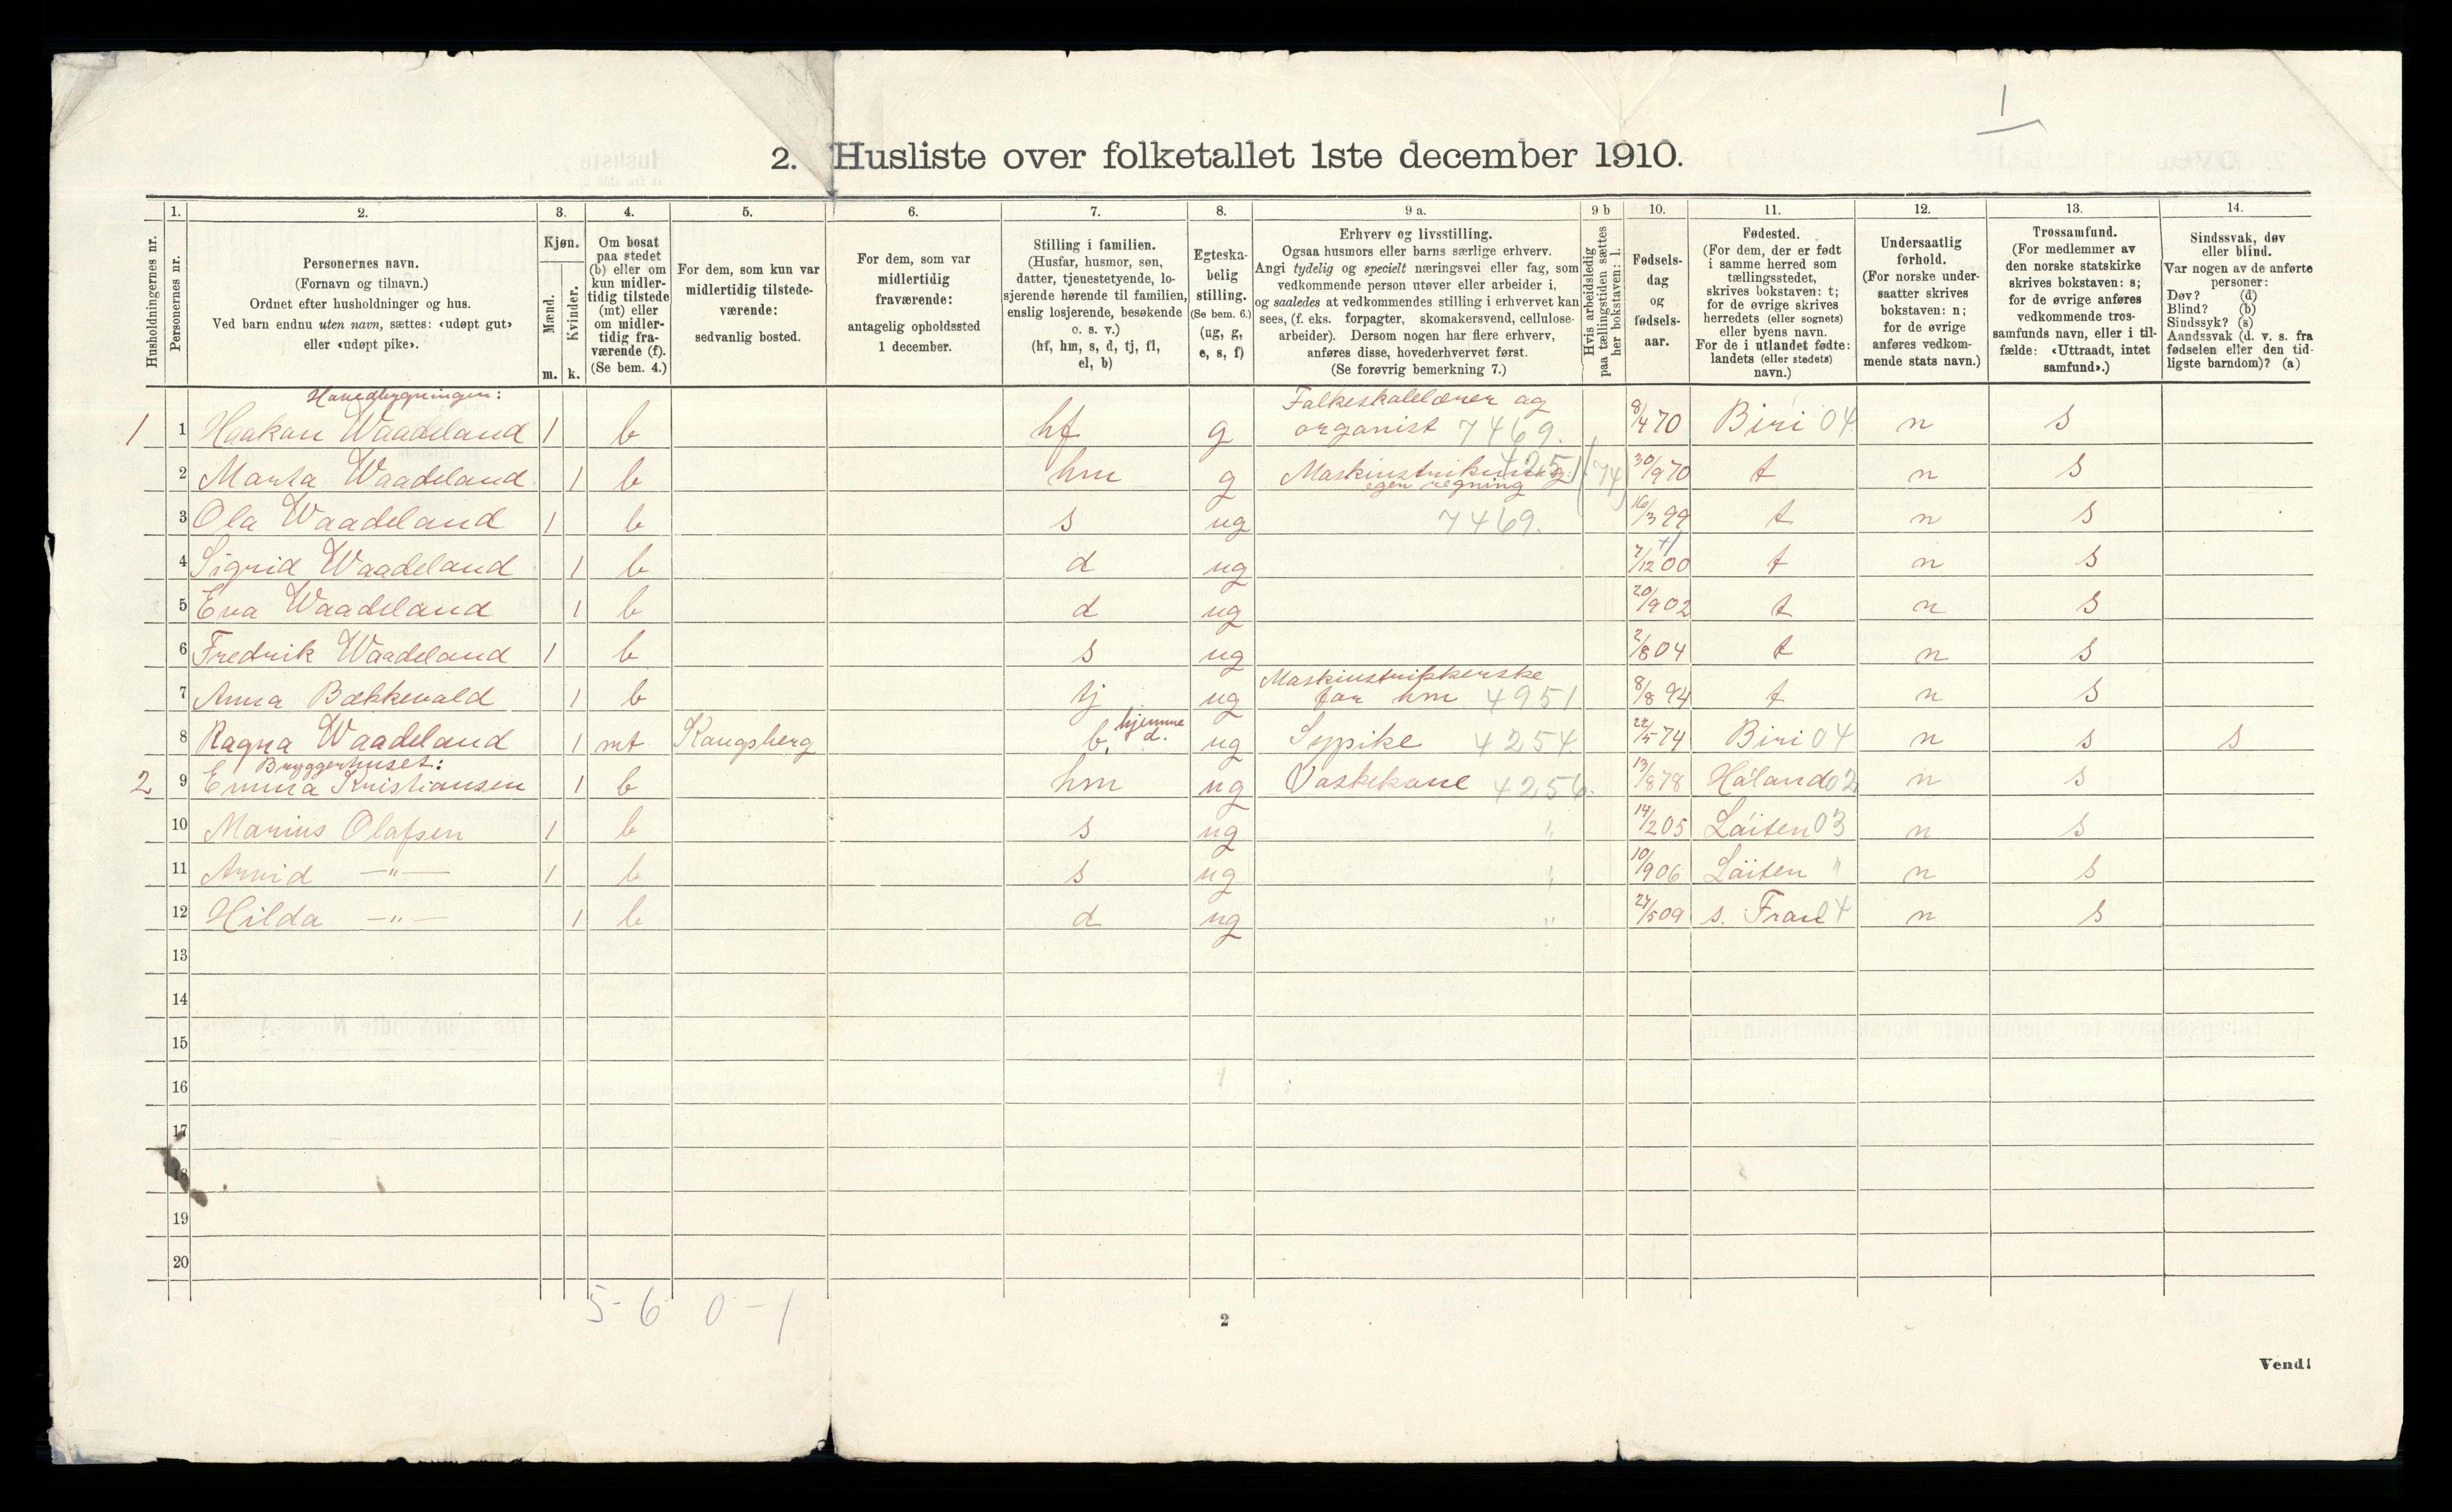 1
2. Husliste over folketallet 1ste december 1910.
Husholdningernes nr.
1.
Personernes nr.
2.
Personernes navn.
(Fornavn og tilnavn.)
Ordnet efter husholdninger og hus.
Ved barn endnu uten navn, sættes: «udøpt gut»
eller «udøpt pike».
3.
Kjøn.
Mænd.
m.
Kvinder.
k.
4.
Om bosat
paa stedet
(b) eller om
kun midler-
tidig tilstede
(mt) eller
om midler-
tidig fra-
værende (f).
(Se bem. 4.)
5.
For dem, som kun var
midlertidig tilstede-
værende:
sedvanlig bosted.
6.
For dem, som var
midlertidig
fraværende:
antagelig opholdssted
1 december.
7.
Stilling i familien.
(Husfar, husmor, søn,
datter, tjenestetyende, lo-
sjerende hørende til familien,
enslig losjerende, besøkende
o. s. v.)
(hf, hm, s, d, tj, fl,
el, b)
8.
Egteska-
belig
stilling.
(Se bem. 6.)
(ug, g,
e, s, f)
9 a.
Erhverv og livsstilling.
Ogsaa husmors eller barns særlige erhverv.
Angi tydelig og specielt næringsvei eller fag, som
vedkommende person utøver eller arbeider i,
og saaledes at vedkommendes stilling i erhvervet kan
sees, (f. eks. forpagter, skomakersvend, cellulose-
arbeider). Dersom nogen har flere erhverv,
anføres disse, hovederhvervet først.
(Se forøvrig bemerkning 7.)
9 b
Hvis arbeidsledig
paa tællingstiden sættes
her bokstaven: l.
10.
Fødsels-
dag
og
fødsels-
aar.
11.
Fødested.
(For dem, der er født
i samme herred som
tællingsstedet,
skrives bokstaven: t;
for de øvrige skrives
herredets (eller sognets)
eller byens navn.
For de i utlandet fødte:
landets (eller stedets)
navn.)
12.
Undersaatlig
forhold.
(For norske under-
saatter skrives
bokstaven: n;
for de øvrige
anføres vedkom-
mende stats navn.)
13.
Trossamfund.
(For medlemmer av
den norske statskirke
skrives bokstaven: s;
for de øvrige anføres
vedkommende tros-
samfunds navn, eller i til-
fælde: «Uttraadt, intet
samfund».)
14.
Sindssvak, døv
eller blind.
Var nogen av de anførte
personer:
Døv? (d)
Blind? (b)
Sindssyk? (s)
Aandssvak (d. v. s. fra
fødselen eller den tid-
ligste barndom)? (a)
Hovedbygningen:
1 1 Haakan Waadeland 1 b hf g Falkeskalelærer ag organist 7469. 8/4 70 Biri 04 n s
2 Marta Waadeland 1 b hm g egen regning 30/9 70 t n s
3 Ola Waadeland 1 b s ug 7469. 16/3 99 t n s
4 Sigrid Waadeland 1 b d ug 7/12 00 t n s
5 Eva Waadeland 1 b d ug 20/9 02 t n s
6 Fredrik Waadeland 1 b s ug 2/8 04 t n s
7 Anna Bækkevald 1 b tj ug Maskinstrikkerske far hm 4951 8/8 94 t n s
8 Ragna Waadeland 1 mt Kangsberg b. hjemme d. ug Sypike 4254 22/5 74 Biri 04 n s s
Bryggerhuset:
2 9 Emma Kristiansen 1 b hm ug Vaskekane 4256. 13/8 78 Håland 02 n s
10 Marius Olafsen 1 b s ug " 14/2 05 Løiten 03 n s
11 Arvid —"— 1 b s ug " 10/9 06 Løiten " n s
12 Hilda —"— 1 b d ug " 27/5 09 s. Fran 04 n s
13
14
15
16
17
18
19
20
5 - 6 0 - 1
2
Vend!